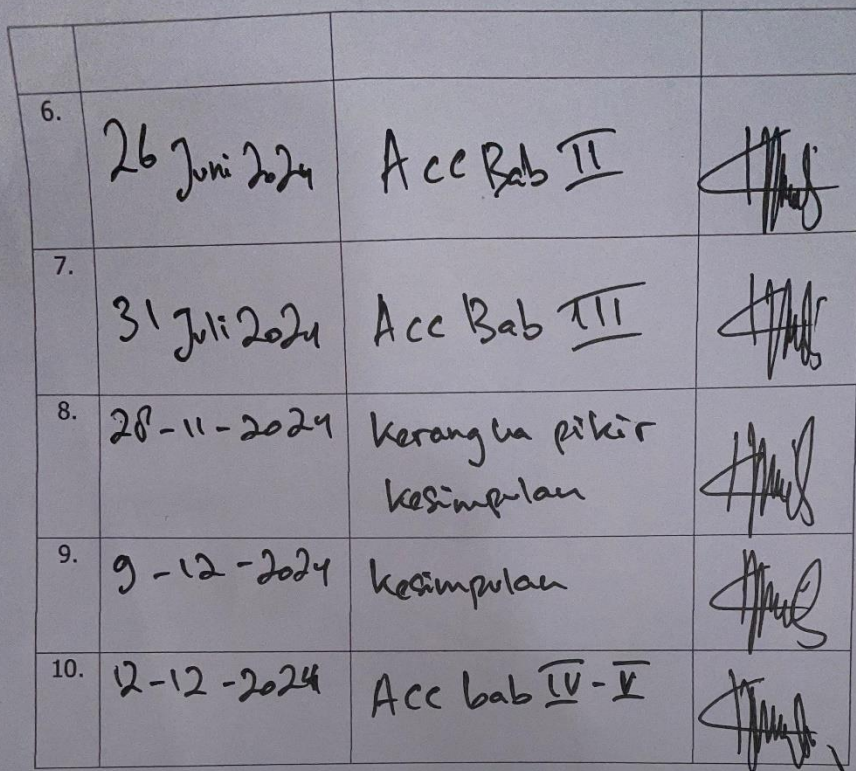 6.
26 Juni 2024
Acc Bab II
7.
31 Juli 2024
Acc Bab III
8.
28-11-2024
Kerangka pikir
kesimpulan
9.
9-12-2024
kesimpulan
10.
12-12-2024
Acc bab IV-V